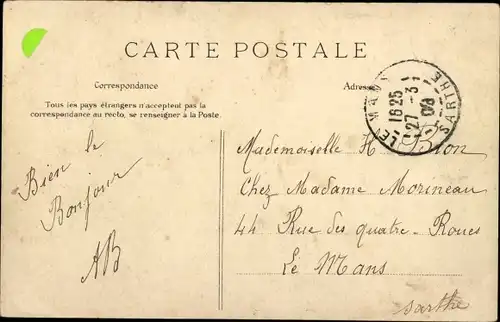 CARTE POSTALE
Correspondance
Tous les pays étrangers n'acceptent pas la
correspondance au recto, se renseigner à la Poste.
Adresse
LE MANS SARTHE
1625
27-3
08
Bien le
Bonjour
AB
Mademoiselle H Brion
Chez Madame Morineau
44 Rue des quatre-Roues
Le Mans
Sarthe